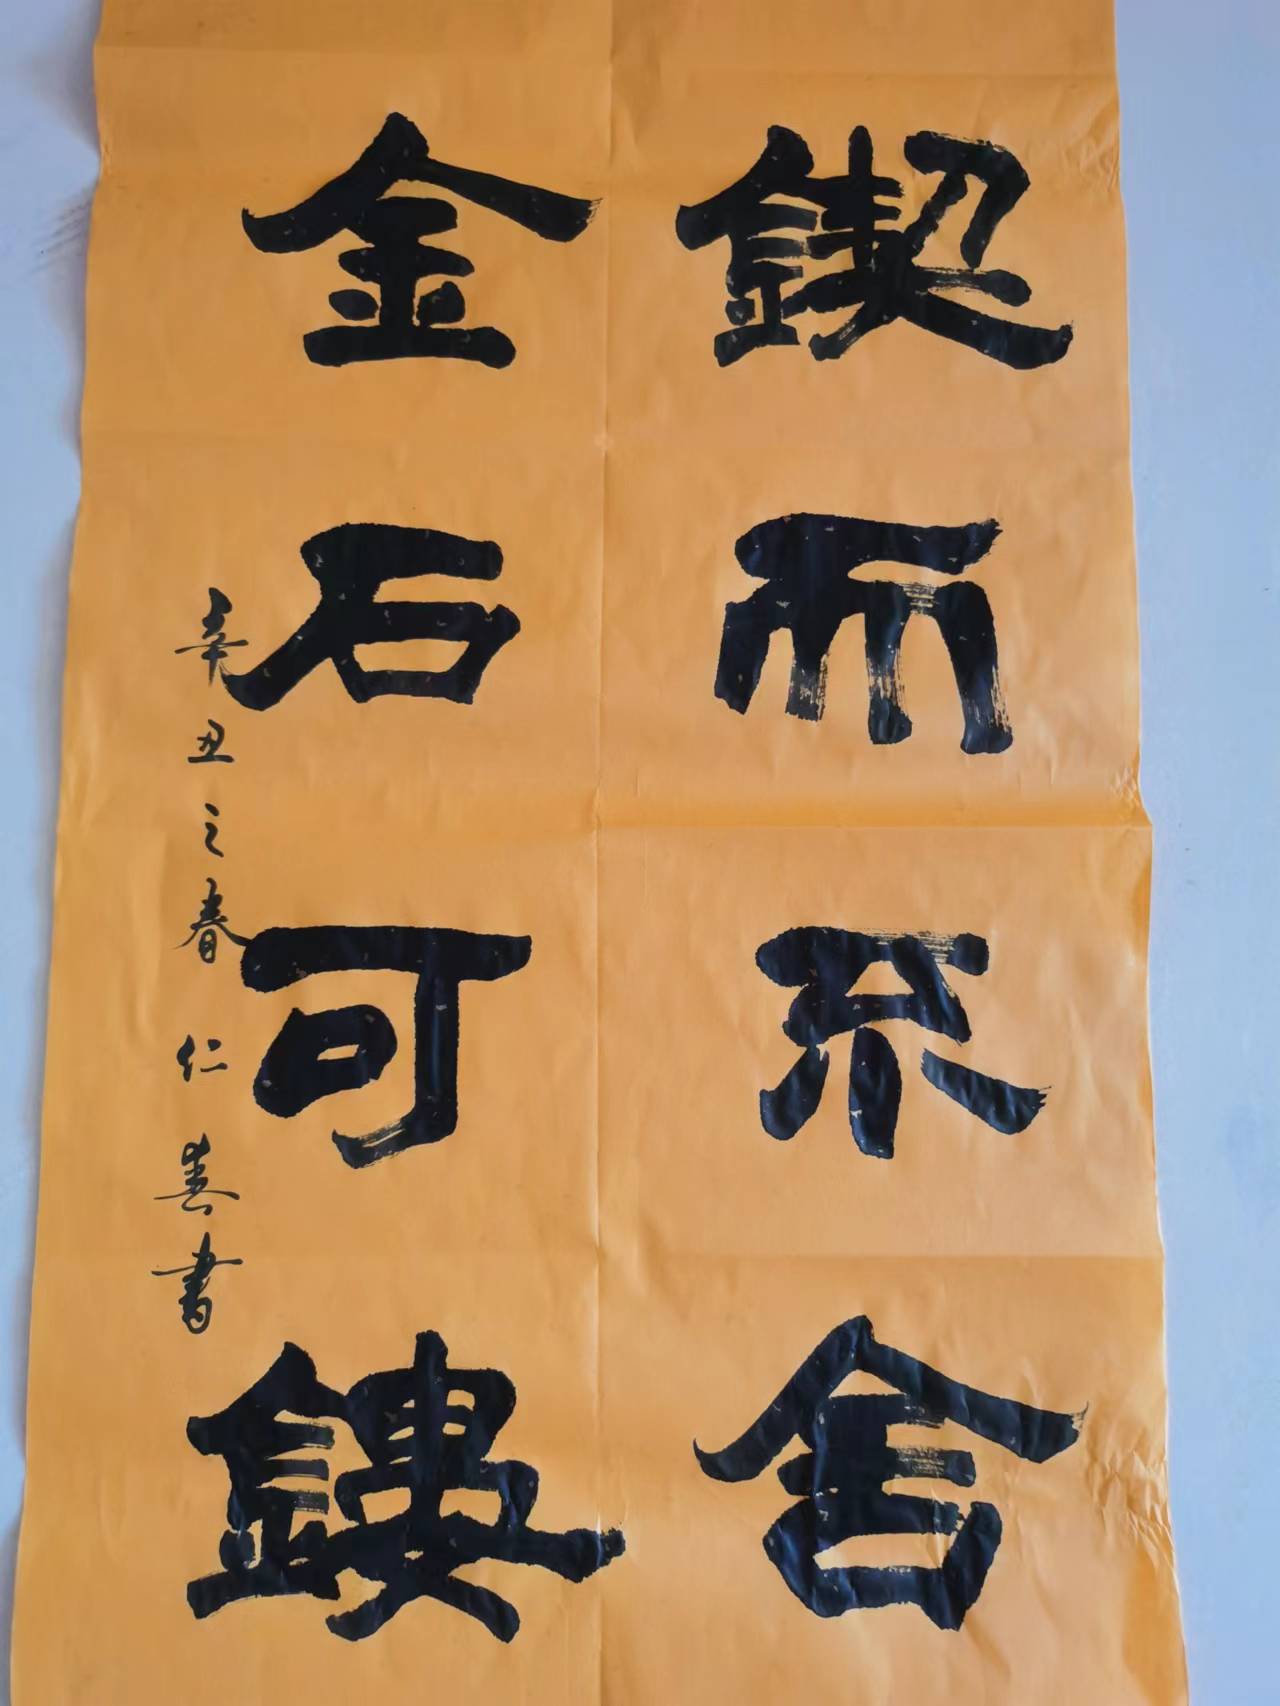 鍥而不舍
金石可鏤
辛丑之春 仁喜書